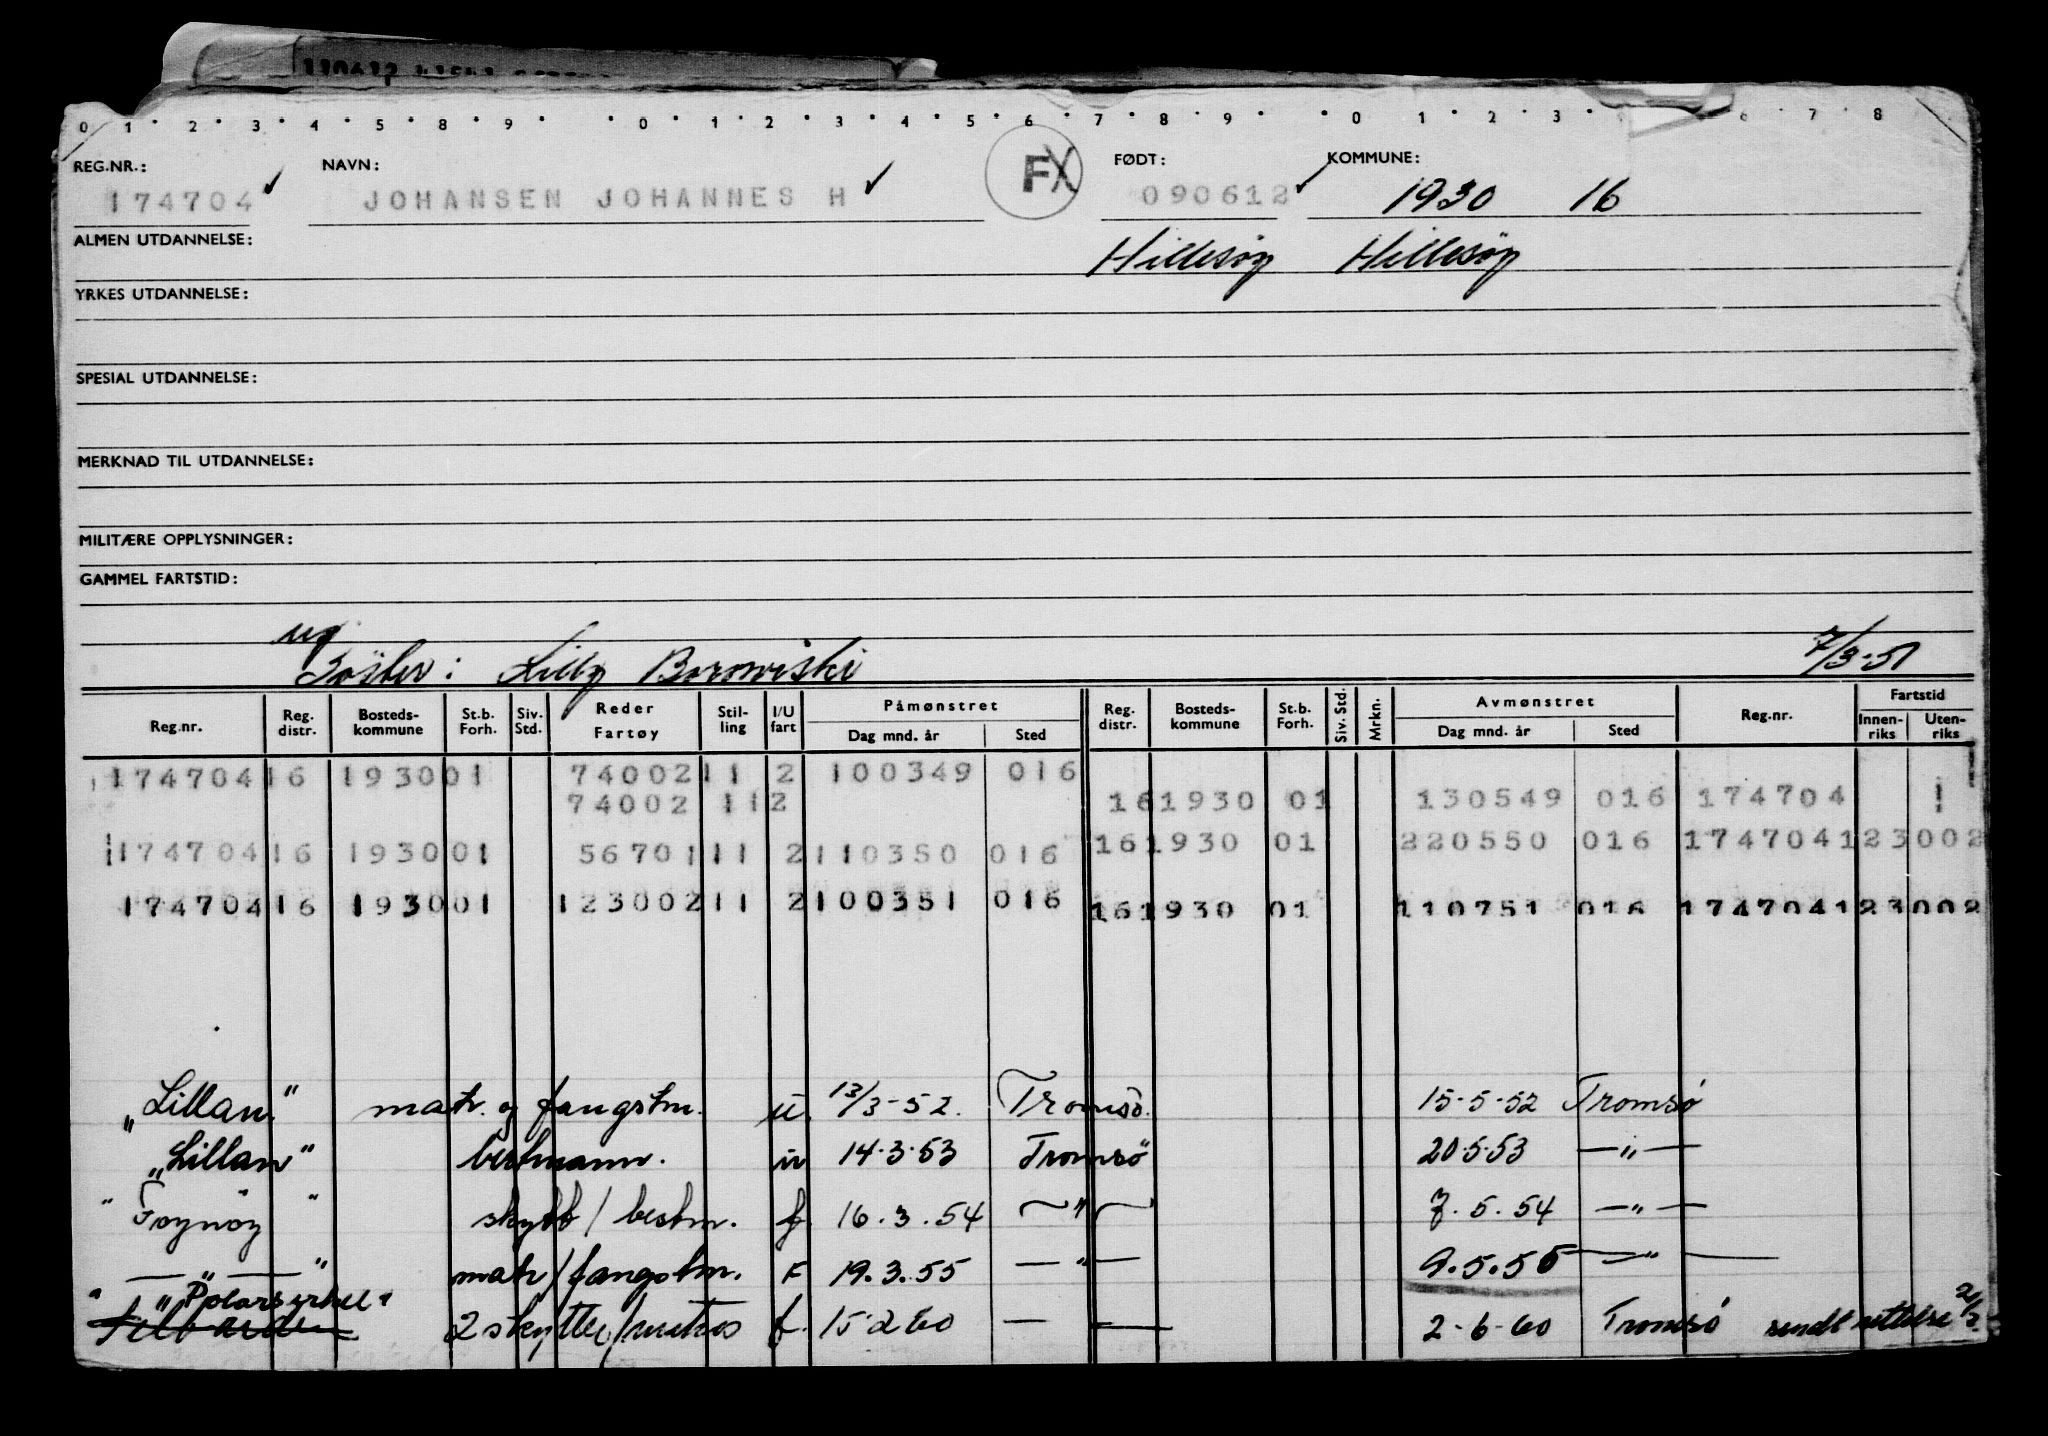 0 1 2 3 4 5 8 9 0 1 2 3 4 5 6 7 8 9 0 1 2 3 6 7 8
REG.NR.: NAVN: FX FØDT: KOMMUNE:
174704 JOHANSEN JOHANNES H 090612 1930 16
ALMEN UTDANNELSE: Hillesøy Hillesøy
YRKES UTDANNELSE:
SPESIAL UTDANNELSE:
MERKNAD TIL UTDANNELSE:
MILITÆRE OPPLYSNINGER:
GAMMEL FARTSTID:
ug
Søster: Lilly Borowiski 7/3-51
Reg.nr. Reg. distr. Bosteds-kommune St.b. Forh. Siv. Std. Reder Fartøy Stil-ling I/U fart Påmønstret Dag mnd. år Sted Reg. distr. Bosteds-kommune St.b. Forh. Siv. Std. Mrkn. Avmønstret Dag mnd. år Sted Reg.nr. Fartstid Innen-riks Uten-riks
174704 16 1930 01 74002 11 2 100349 016
74002 11 2 16 1930 01 130549 016 174704
174704 16 1930 01 56701 11 2 110350 016 16 1930 01 220550 016 174704 123002
174704 16 1930 01 123002 11 2 100351 016 16 1930 01 110751 016 174704 123002
"Lillan" matr. og fangstm. u. 13/3-52. Tromsö. 15-5-52 Tromsö
"Lillan" bestmann. u 14.3.53 Tromsö 20.5.53 — " —
" Foynöy " skytt / bestm. f. 16.3.54 — " — 7.5.54 — " —
— " — " matr / fangstm. F 19.3.55 — " — 9.5.55 — " —
" "Polarsirkel"
2 skytter/matros f. 15-2 60 — — 2-6-60 Tromsö sendt rettelse